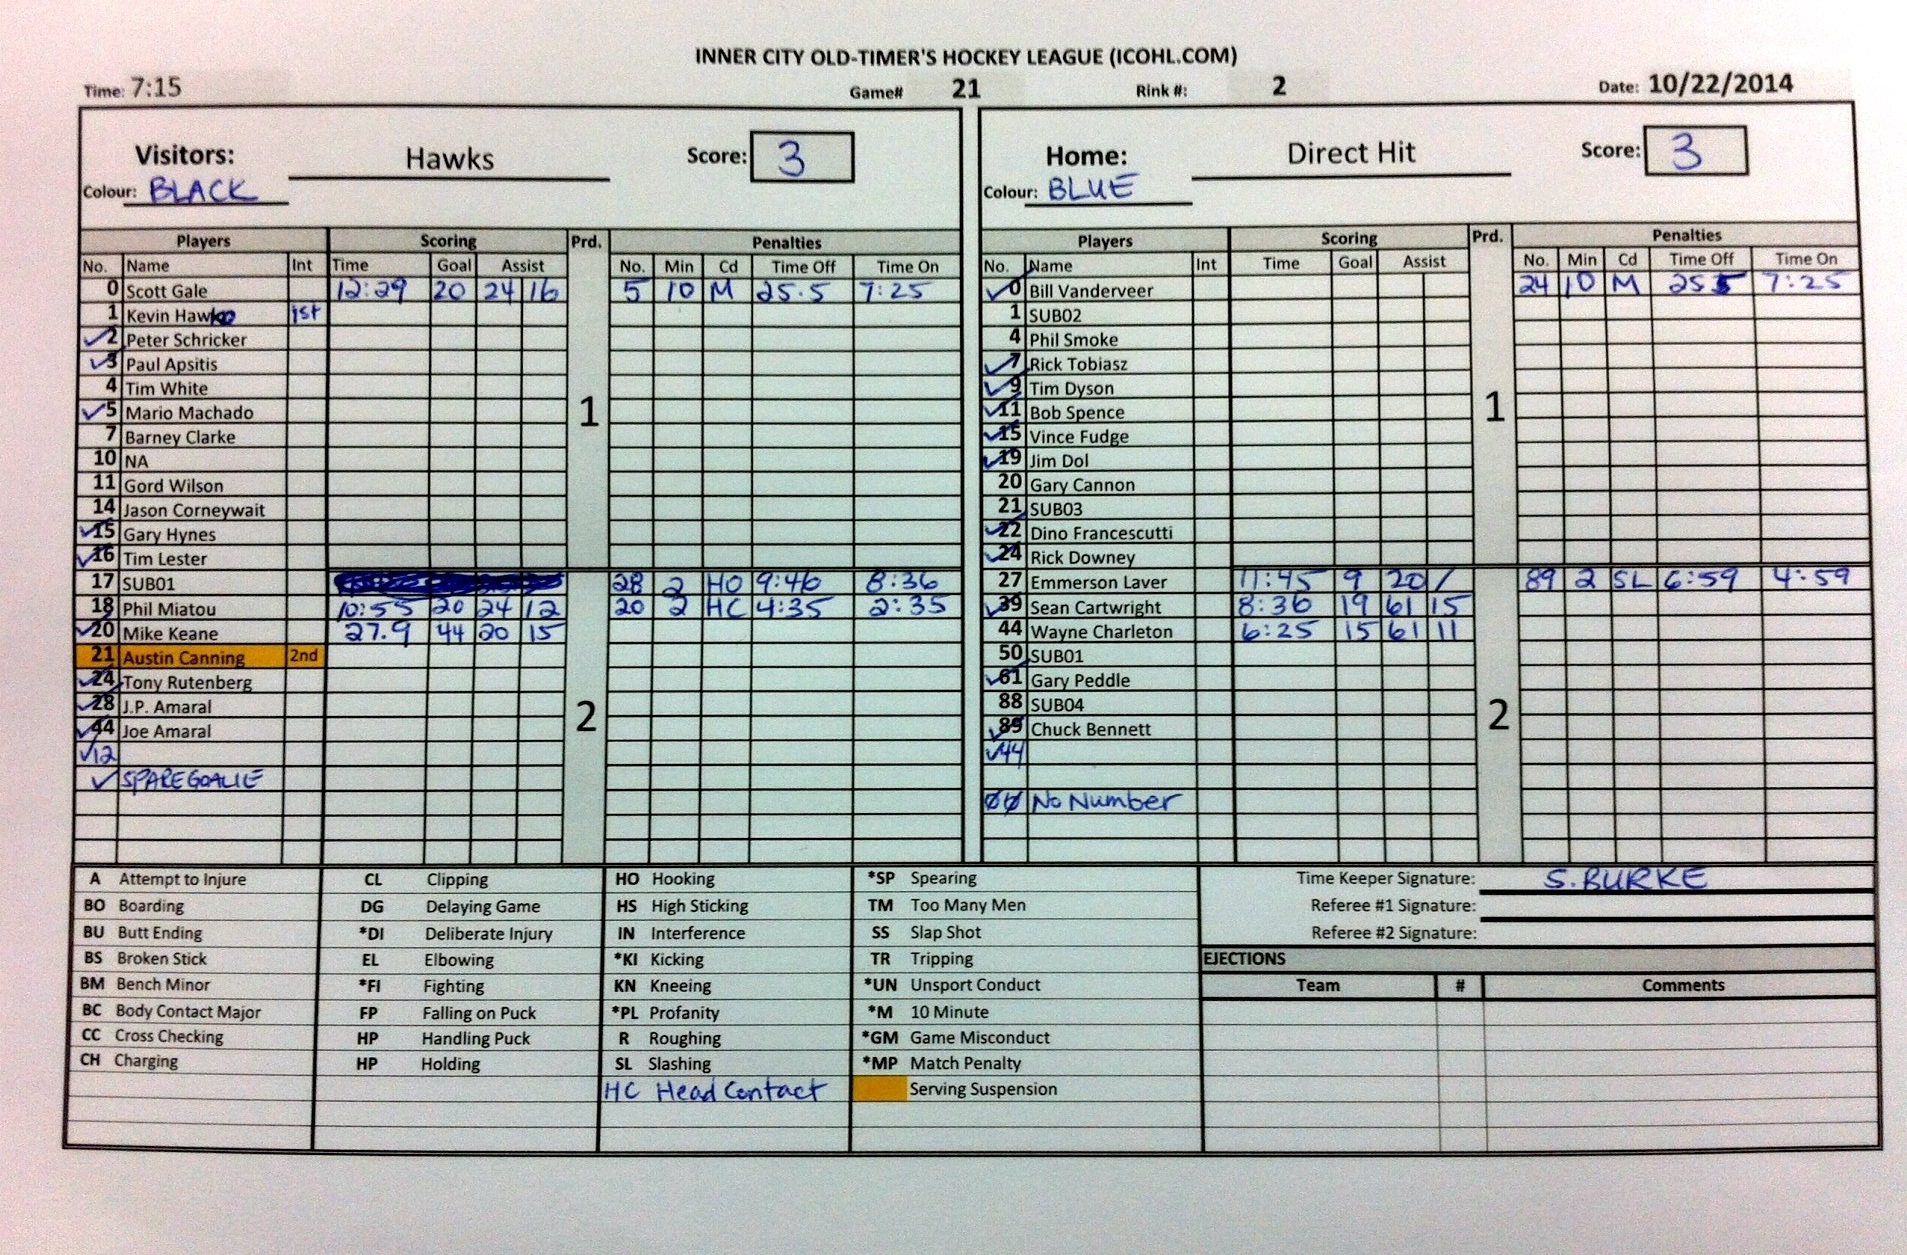 INNER CITY OLD-TIMER'S HOCKEY LEAGUE (ICOHL.COM)
Time: 7:15 Game# 21 Rink #: 2 Date: 10/22/2014
Visitors: Hawks Score: 3
Colour: BLACK
Players Scoring Prd. Penalties
No. Name Int Time Goal Assist No. Min Cd Time Off Time On
0 Scott Gale 12:29 20 24 16 5 10 M 25.5 7:25
1 Kevin 1st
✓2 Peter Schricker
✓3 Paul Apsitis
4 Tim White
✓5 Mario Machado
1
7 Barney Clarke
10 NA
11 Gord Wilson
14 Jason Corneywait
✓15 Gary Hynes
✓16 Tim Lester
17 SUB01 28 2 HO 9:46 8:36
18 Phil Miatou 10:55 20 24 12 20 2 HC 4:35 2:35
✓20 Mike Keane 27.9 44 20 15
21 Austin Canning 2nd
✓24 Tony Rutenberg
✓28 J.P. Amaral
2
✓44 Joe Amaral
✓12
✓ SPARE GOALIE
Home: Direct Hit Score: 3
Colour: BLUE
Players Scoring Prd. Penalties
No. Name Int Time Goal Assist No. Min Cd Time Off Time On
✓0 Bill Vanderveer 24 10 M 25.5 7:25
1 SUB02
4 Phil Smoke
✓7 Rick Tobiasz
✓9 Tim Dyson
✓11 Bob Spence
1
✓15 Vince Fudge
✓19 Jim Dol
20 Gary Cannon
21 SUB03
✓22 Dino Francescutti
✓24 Rick Downey
27 Emmerson Laver 11:45 9 20 / 89 2 SL 6:59 4:59
✓39 Sean Cartwright 8:36 19 61 15
44 Wayne Charleton 6:25 15 61 11
50 SUB01
✓61 Gary Peddle
88 SUB04
2
✓89 Chuck Bennett
✓44
00 No Number
A Attempt to Injure
BO Boarding
BU Butt Ending
BS Broken Stick
BM Bench Minor
BC Body Contact Major
CC Cross Checking
CH Charging
CL Clipping
DG Delaying Game
*DI Deliberate Injury
EL Elbowing
*FI Fighting
FP Falling on Puck
HP Handling Puck
HP Holding
HO Hooking
HS High Sticking
IN Interference
*KI Kicking
KN Kneeing
*PL Profanity
R Roughing
SL Slashing
HC Head Contact
*SP Spearing
TM Too Many Men
SS Slap Shot
TR Tripping
*UN Unsport Conduct
*M 10 Minute
*GM Game Misconduct
*MP Match Penalty
Serving Suspension
Time Keeper Signature: S. BURKE
Referee #1 Signature:
Referee #2 Signature:
EJECTIONS
Team # Comments